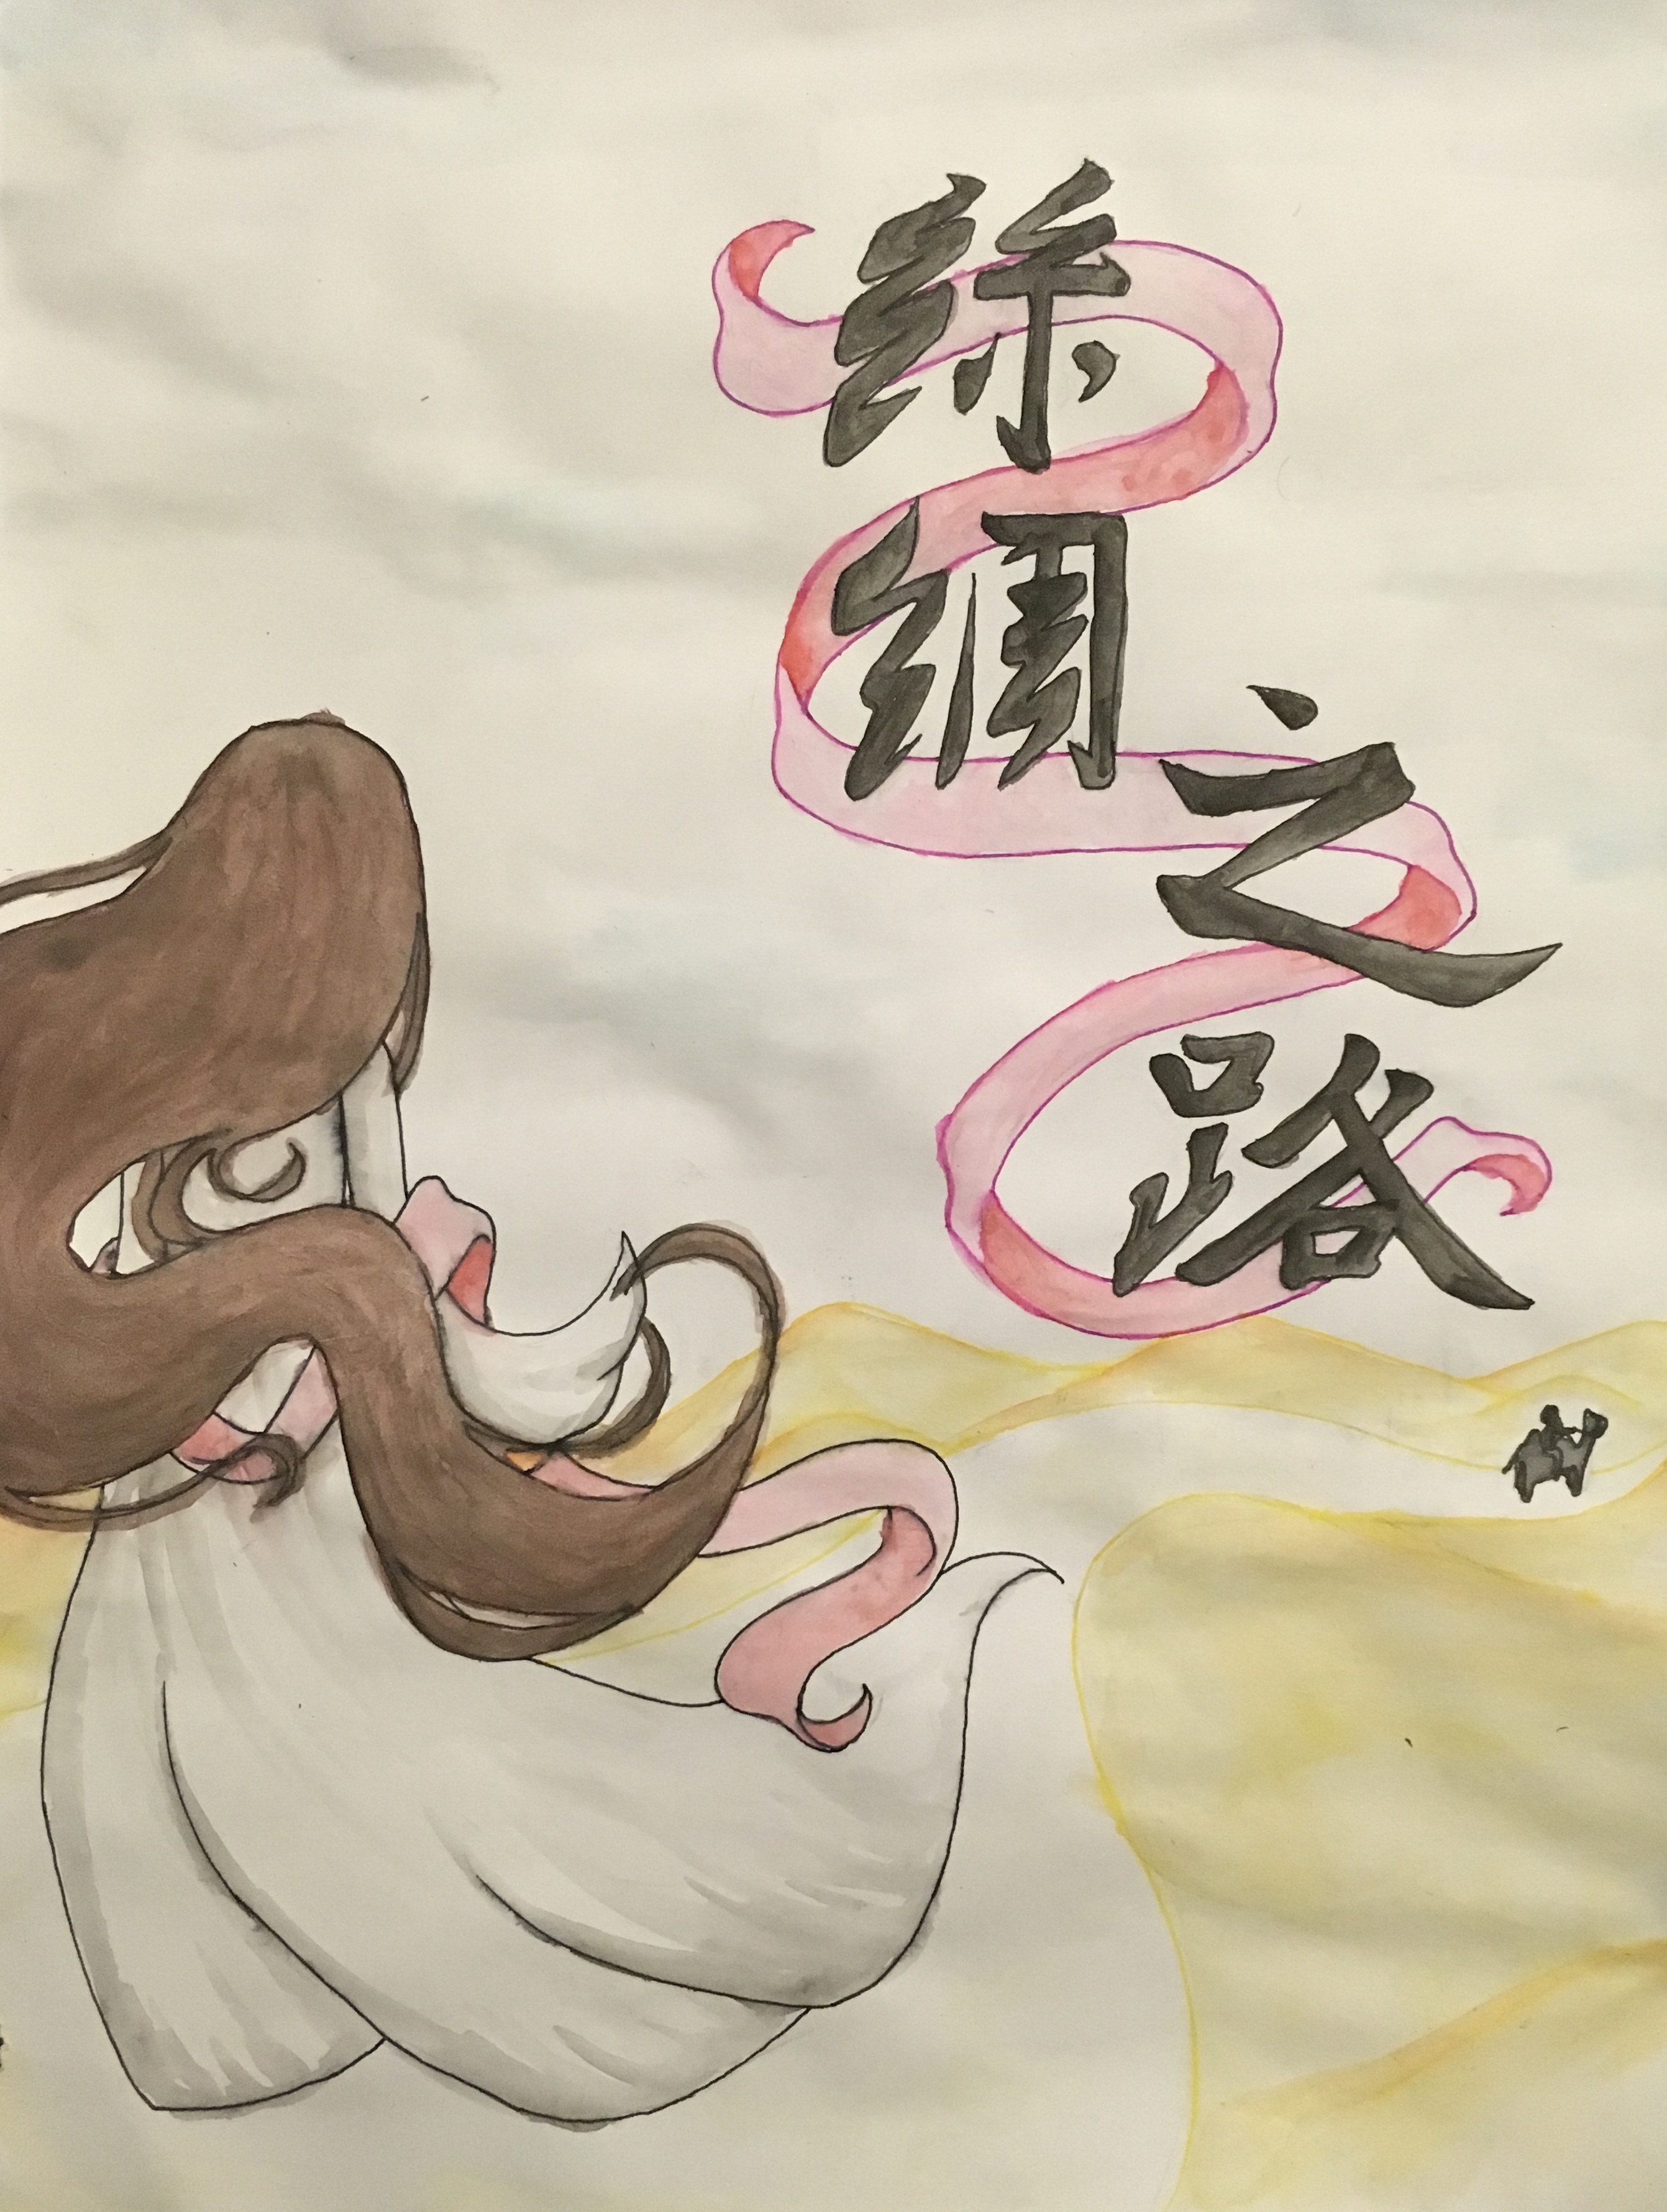 絲綢之路